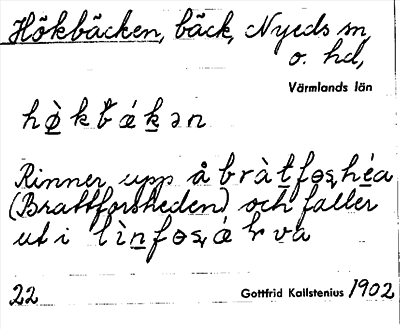 Hökbäcken, bäck, Nyeds sn,
o. hd,
Värmlands län
hø̀kbǽkən
Rinner upp å bràtfɷʂhéa
(Brattforsheden) och faller
ut i lìnfɷʂǽlva
22 Gottfrid Kallstenius 1902